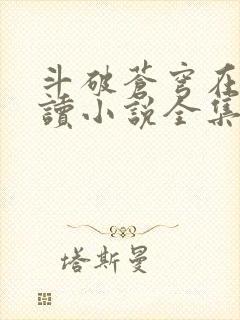 斗破蒼穹在
讀小說全集
塔斯曼